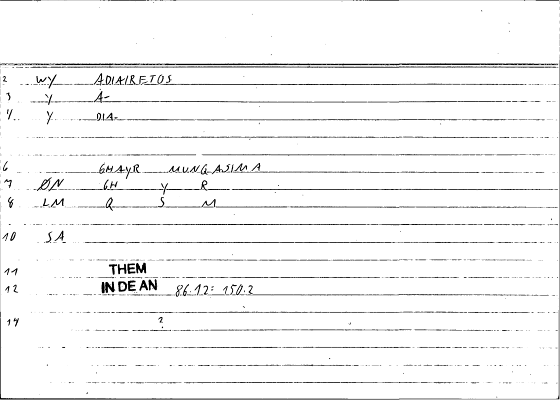 2 WY ADIAIRETOS
3 Y A-
4 Y DIA-
6 GHAYR MUNQASIMA
7 ØN GH Y R
8 LM Q S M
10 SA
11 THEM
12 IN DE AN 86.12: 150.2
14 2